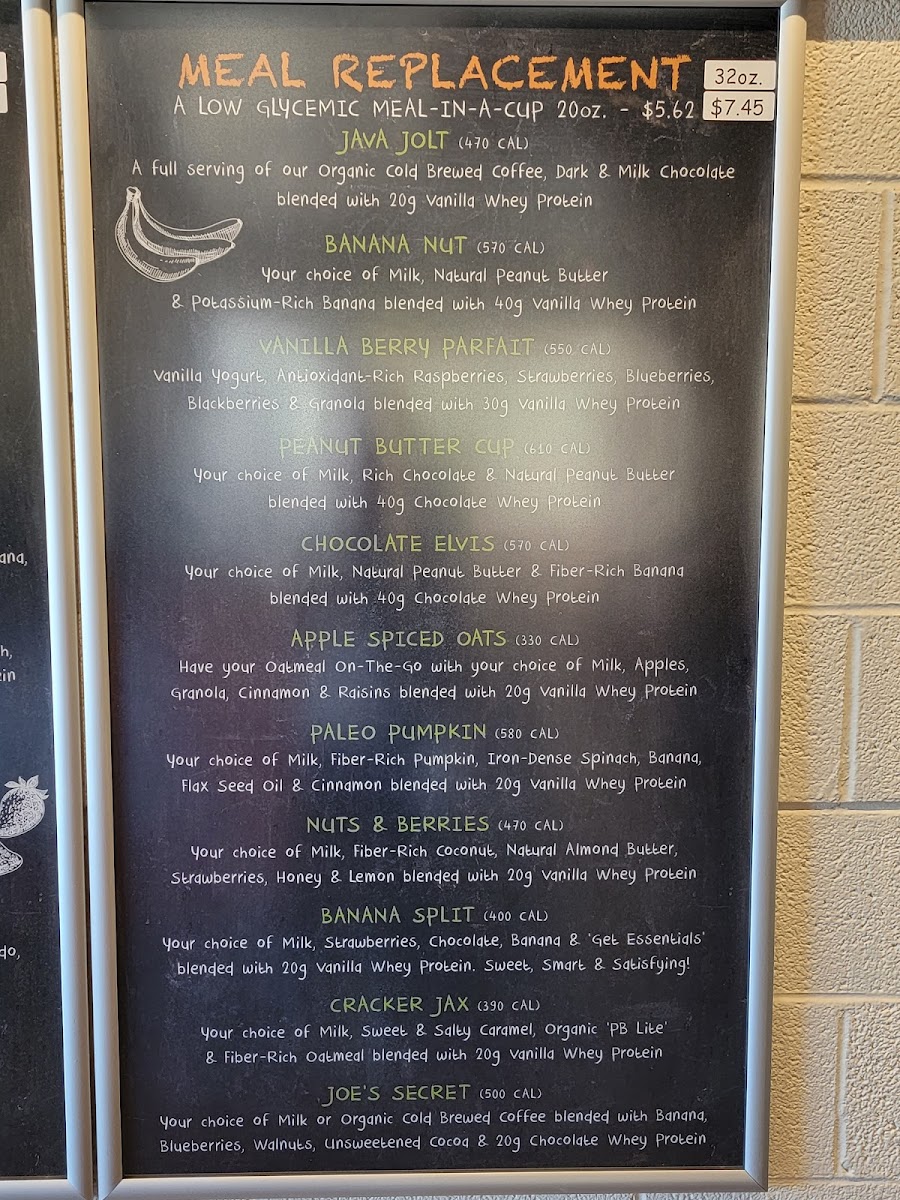 MEAL REPLACEMENT
32oz.
A LOW GLYCEMIC MEAL-IN-A-CUP 20oz. - $5.62
$7.45
JAVA JOLT (470 CAL)
A full serving of our Organic Cold Brewed Coffee, Dark & Milk Chocolate
blended with 20g Vanilla Whey Protein
BANANA NUT (570 CAL)
Your choice of Milk, Natural Peanut Butter
& Potassium-Rich Banana blended with 40g Vanilla Whey Protein
VANILLA BERRY PARFAIT (550 CAL)
Vanilla Yogurt, Antioxidant-Rich Raspberries, Strawberries, Blueberries,
Blackberries & Granola blended with 30g Vanilla Whey Protein
PEANUT BUTTER CUP (610 CAL)
Your choice of Milk, Rich Chocolate & Natural Peanut Butter
blended with 40g Chocolate Whey Protein
CHOCOLATE ELVIS (570 CAL)
Your choice of Milk, Natural Peanut Butter & Fiber-Rich Banana
blended with 40g Chocolate Whey Protein
APPLE SPICED OATS (330 CAL)
Have your Oatmeal On-The-Go with your choice of Milk, Apples,
Granola, Cinnamon & Raisins blended with 20g Vanilla Whey Protein
PALEO PUMPKIN (580 CAL)
Your choice of Milk, Fiber-Rich Pumpkin, Iron-Dense Spinach, Banana,
Flax Seed Oil & Cinnamon blended with 20g Vanilla Whey Protein
NUTS & BERRIES (470 CAL)
Your choice of Milk, Fiber-Rich Coconut, Natural Almond Butter,
Strawberries, Honey & Lemon blended with 20g Vanilla Whey Protein
BANANA SPLIT (400 CAL)
Your choice of Milk, Strawberries, Chocolate, Banana & 'Get Essentials'
blended with 20g Vanilla Whey Protein. Sweet, Smart & Satisfying!
CRACKER JAX (390 CAL)
Your choice of Milk, Sweet & Salty Caramel, Organic 'PB Lite'
& Fiber-Rich Oatmeal blended with 20g Vanilla Whey Protein
JOE'S SECRET (500 CAL)
Your choice of Milk or Organic Cold Brewed Coffee blended with Banana,
Blueberries, Walnuts, Unsweetened Cocoa & 20g Chocolate Whey Protein